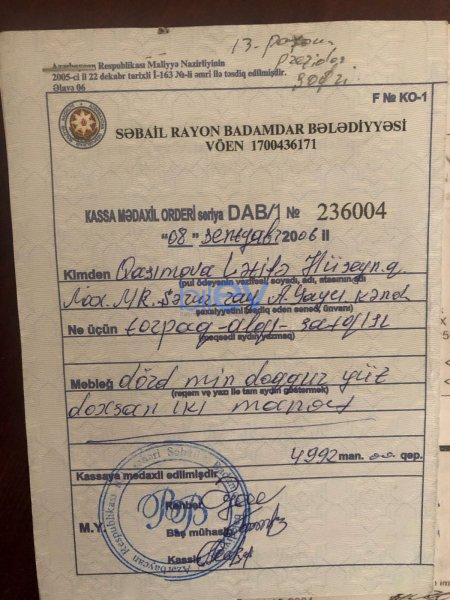 13-
Azərbaycan Respublikası Maliyyə Nazirliyinin
2005-ci il 22 dekabr tarixli İ-163 №-li əmri ilə təsdiq edilmişdir.
Əlavə 06
F № KO-1
SƏBAİL RAYON BADAMDAR BƏLƏDİYYƏSİ
VÖEN 1700436171
KASSA MƏDAXİL ORDERİ seriya DAB/1 № 236004
"08" sentyabr 2006 il
Kimdən Qasımova Lətifə Hüseyn q.
(pul ödəyənin vəzifəsi, soyadı, adı, atasının adı
kənd
şəxsiyyətini təsdiq edən sənəd, ünvanı)
Nə üçün torpaq alqı-satqısı
(məqsədi aydın yazmaq)
Məbləğ dörd min doqquz yüz
(rəqəm və yazı ilə tam aydın göstərmək)
doxsan iki manat
4992 man. 00 qəp.
Kassaya mədaxil edilmişdir.
Rəhbər
M.Y.
Baş mühasib
Kassir